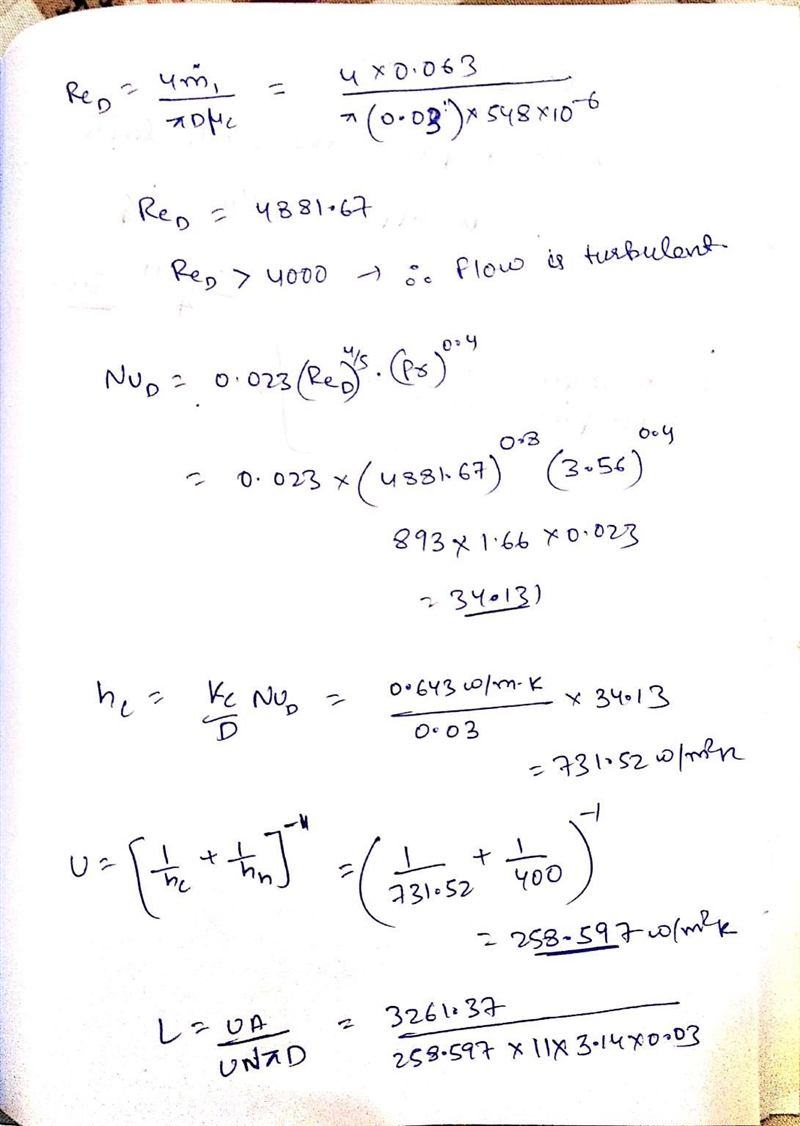 Re_D = 4ṁ₁ / πDμ_c = 4 × 0.063 / π(0.03) × 548 × 10⁻⁶
Re_D = 4881.67
Re_D > 4000 → ∴ Flow is turbulent.
Nu_D = 0.023 (Re_D)^4/5 · (Pr)^0.4
= 0.023 × (4881.67)^0.8 (3.56)^0.4
893 × 1.66 × 0.023
= 34.131
h_c = K_c / D Nu_D = 0.643 w/m-k / 0.03 × 34.13
= 731.52 w/m²k
U = [1/h_c + 1/h_h]⁻¹ = (1/731.52 + 1/400)⁻¹
= 258.597 w/m²k
L = UA / UNπD = 3261.37 / 258.597 × 11 × 3.14 × 0.03